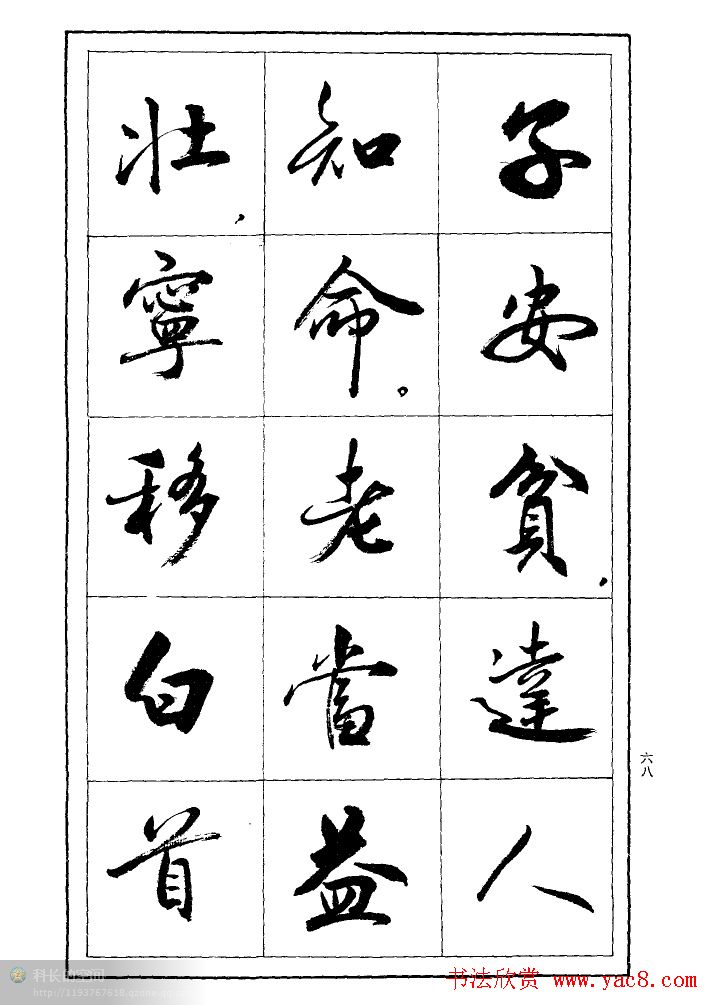 子安貧，達人
知命。老當益
壯，寧移白首
六八
科长的空间
http://1193767618.qzone.qq.com
书法欣赏 www.yac8.com